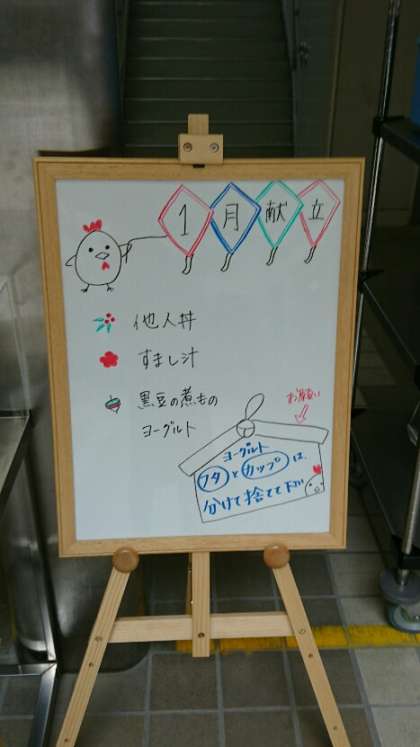 1月献立
他人丼
すまし汁
黒豆の煮もの
ヨーグルト
お願い
ヨーグルト
フタとカップは、
分けて捨てて下さい